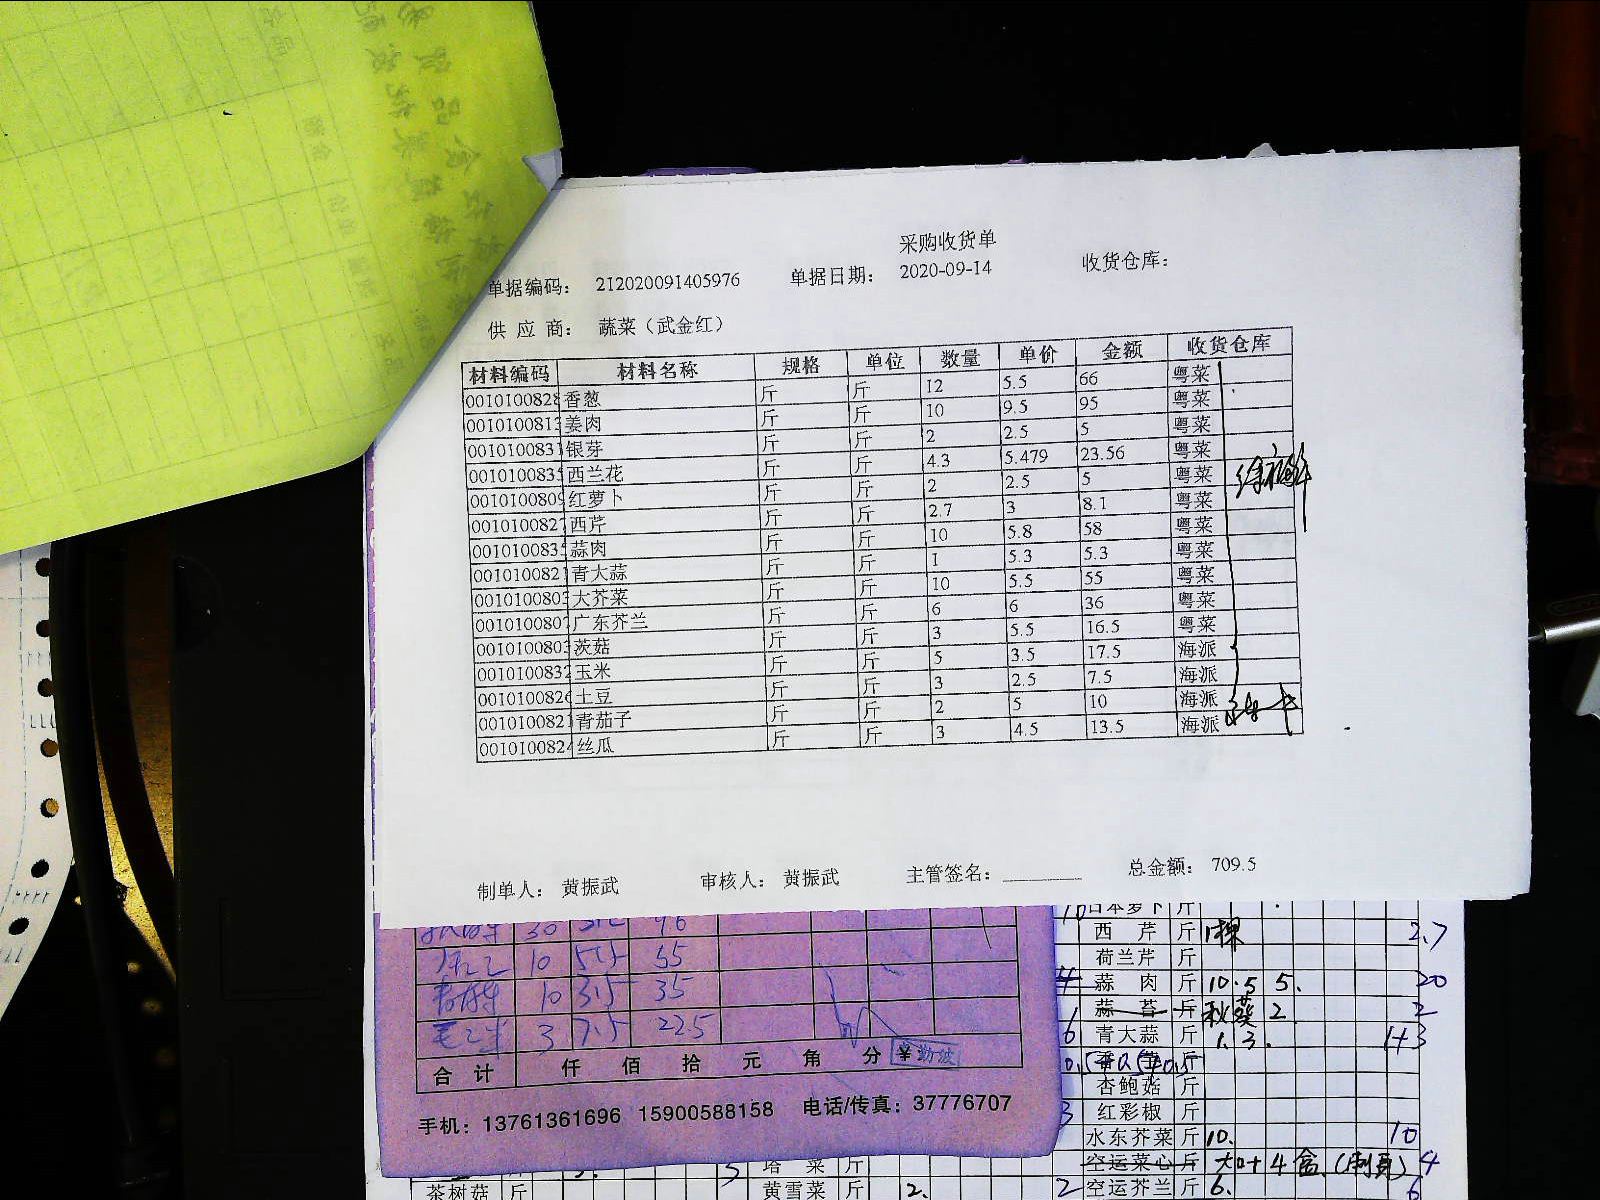 采购收货单
单据编码： 212020091405976 单据日期： 2020-09-14 收货仓库：
供 应 商： 蔬菜（武金红）
材料编码 材料名称 规格 单位 数量 单价 金额 收货仓库
0010100828 香葱 斤 斤 12 5.5 66 粤菜
0010100813 姜肉 斤 斤 10 9.5 95 粤菜
0010100831 银芽 斤 斤 2 2.5 5 粤菜
001010083 西兰花 斤 斤 4.3 5.479 23.56 粤菜
0010100809 红萝卜 斤 斤 2 2.5 5 粤菜
0010100827 西芹 斤 斤 2.7 3 8.1 粤菜
001010083 蒜肉 斤 斤 10 5.8 58 粤菜
0010100821 青大蒜 斤 斤 1 5.3 5.3 粤菜
0010100803 大芥菜 斤 斤 10 5.5 55 粤菜
0010100807 广东芥兰 斤 斤 6 6 36 粤菜
0010100803 茨菇 斤 斤 3 5.5 16.5 粤菜
0010100832 玉米 斤 斤 5 3.5 17.5 海派
0010100826 土豆 斤 斤 3 2.5 7.5 海派
0010100821 青茄子 斤 斤 2 5 10 海派
0010100824 丝瓜 斤 斤 3 4.5 13.5 海派
制单人： 黄振武 审核人： 黄振武 主管签名： 总金额： 709.5
日本萝卜 斤
西 芹 斤 1棵 2.7
荷兰芹 斤
蒜 肉 斤 10.5 5. 20
蒜 苔 斤 秋葵 2 2
6 青大蒜 斤 1.3. 1+3
杏鲍菇 斤
3 红彩椒 斤
水东芥菜 斤 10. 10
空运菜心 斤 4盒 4
2 空运芥兰 斤 6. 6
10 5.5 55
10 3.5 35
3 7.5 22.5
合 计 仟 佰 拾 元 角 分 ¥
手机：13761361696 15900588158 电话/传真：37776707
塔 菜 斤
茶树菇 斤 黄雪菜 斤 2.